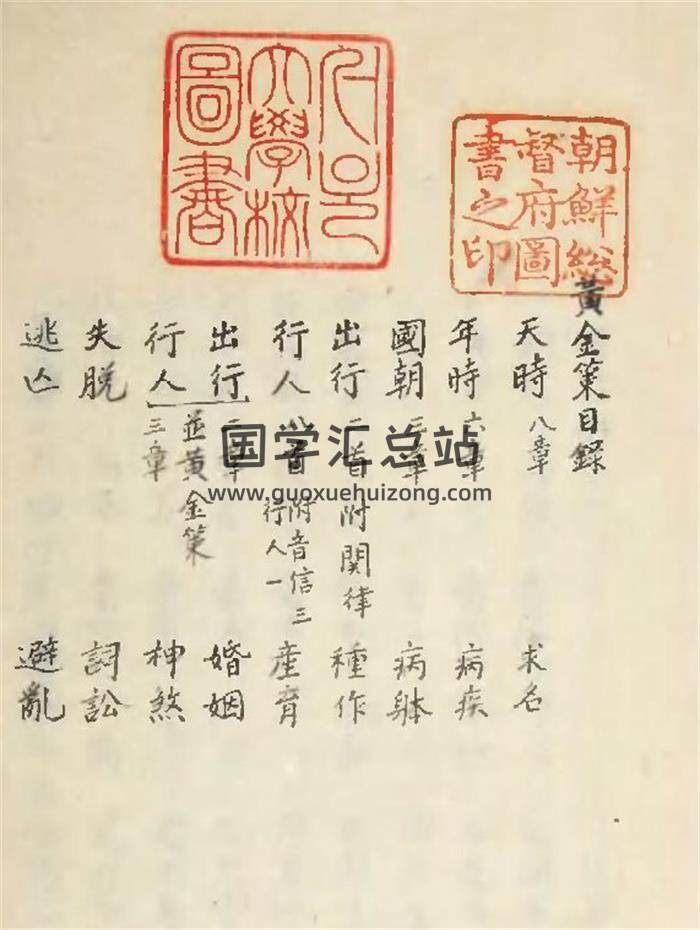 서울大學校圖書
朝鮮総督府圖書之印
黃金策目錄
天時 八章 求名
年時 六章 病疾
國朝 章 病躰
出行 二首附関律 種作
行人 八首 附音信三 行人一 産育
出行 二章 婚姻
並黃金策
行人 三章 神煞
失脫 詞訟
逃亡 避亂
国学汇总站
www.guoxuehuizong.com